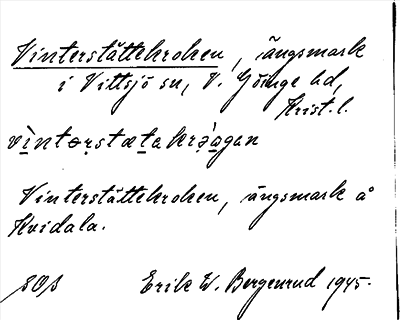 Vinterstättekroken, ängsmark
i Vittsjö sn, V. Göinge hd,
Krist. l.
vìntərstætakrə̀agan
Vinterstättekroken, ängsmark å
Hvidala.
SOS Erik W. Bergenrud 1945.